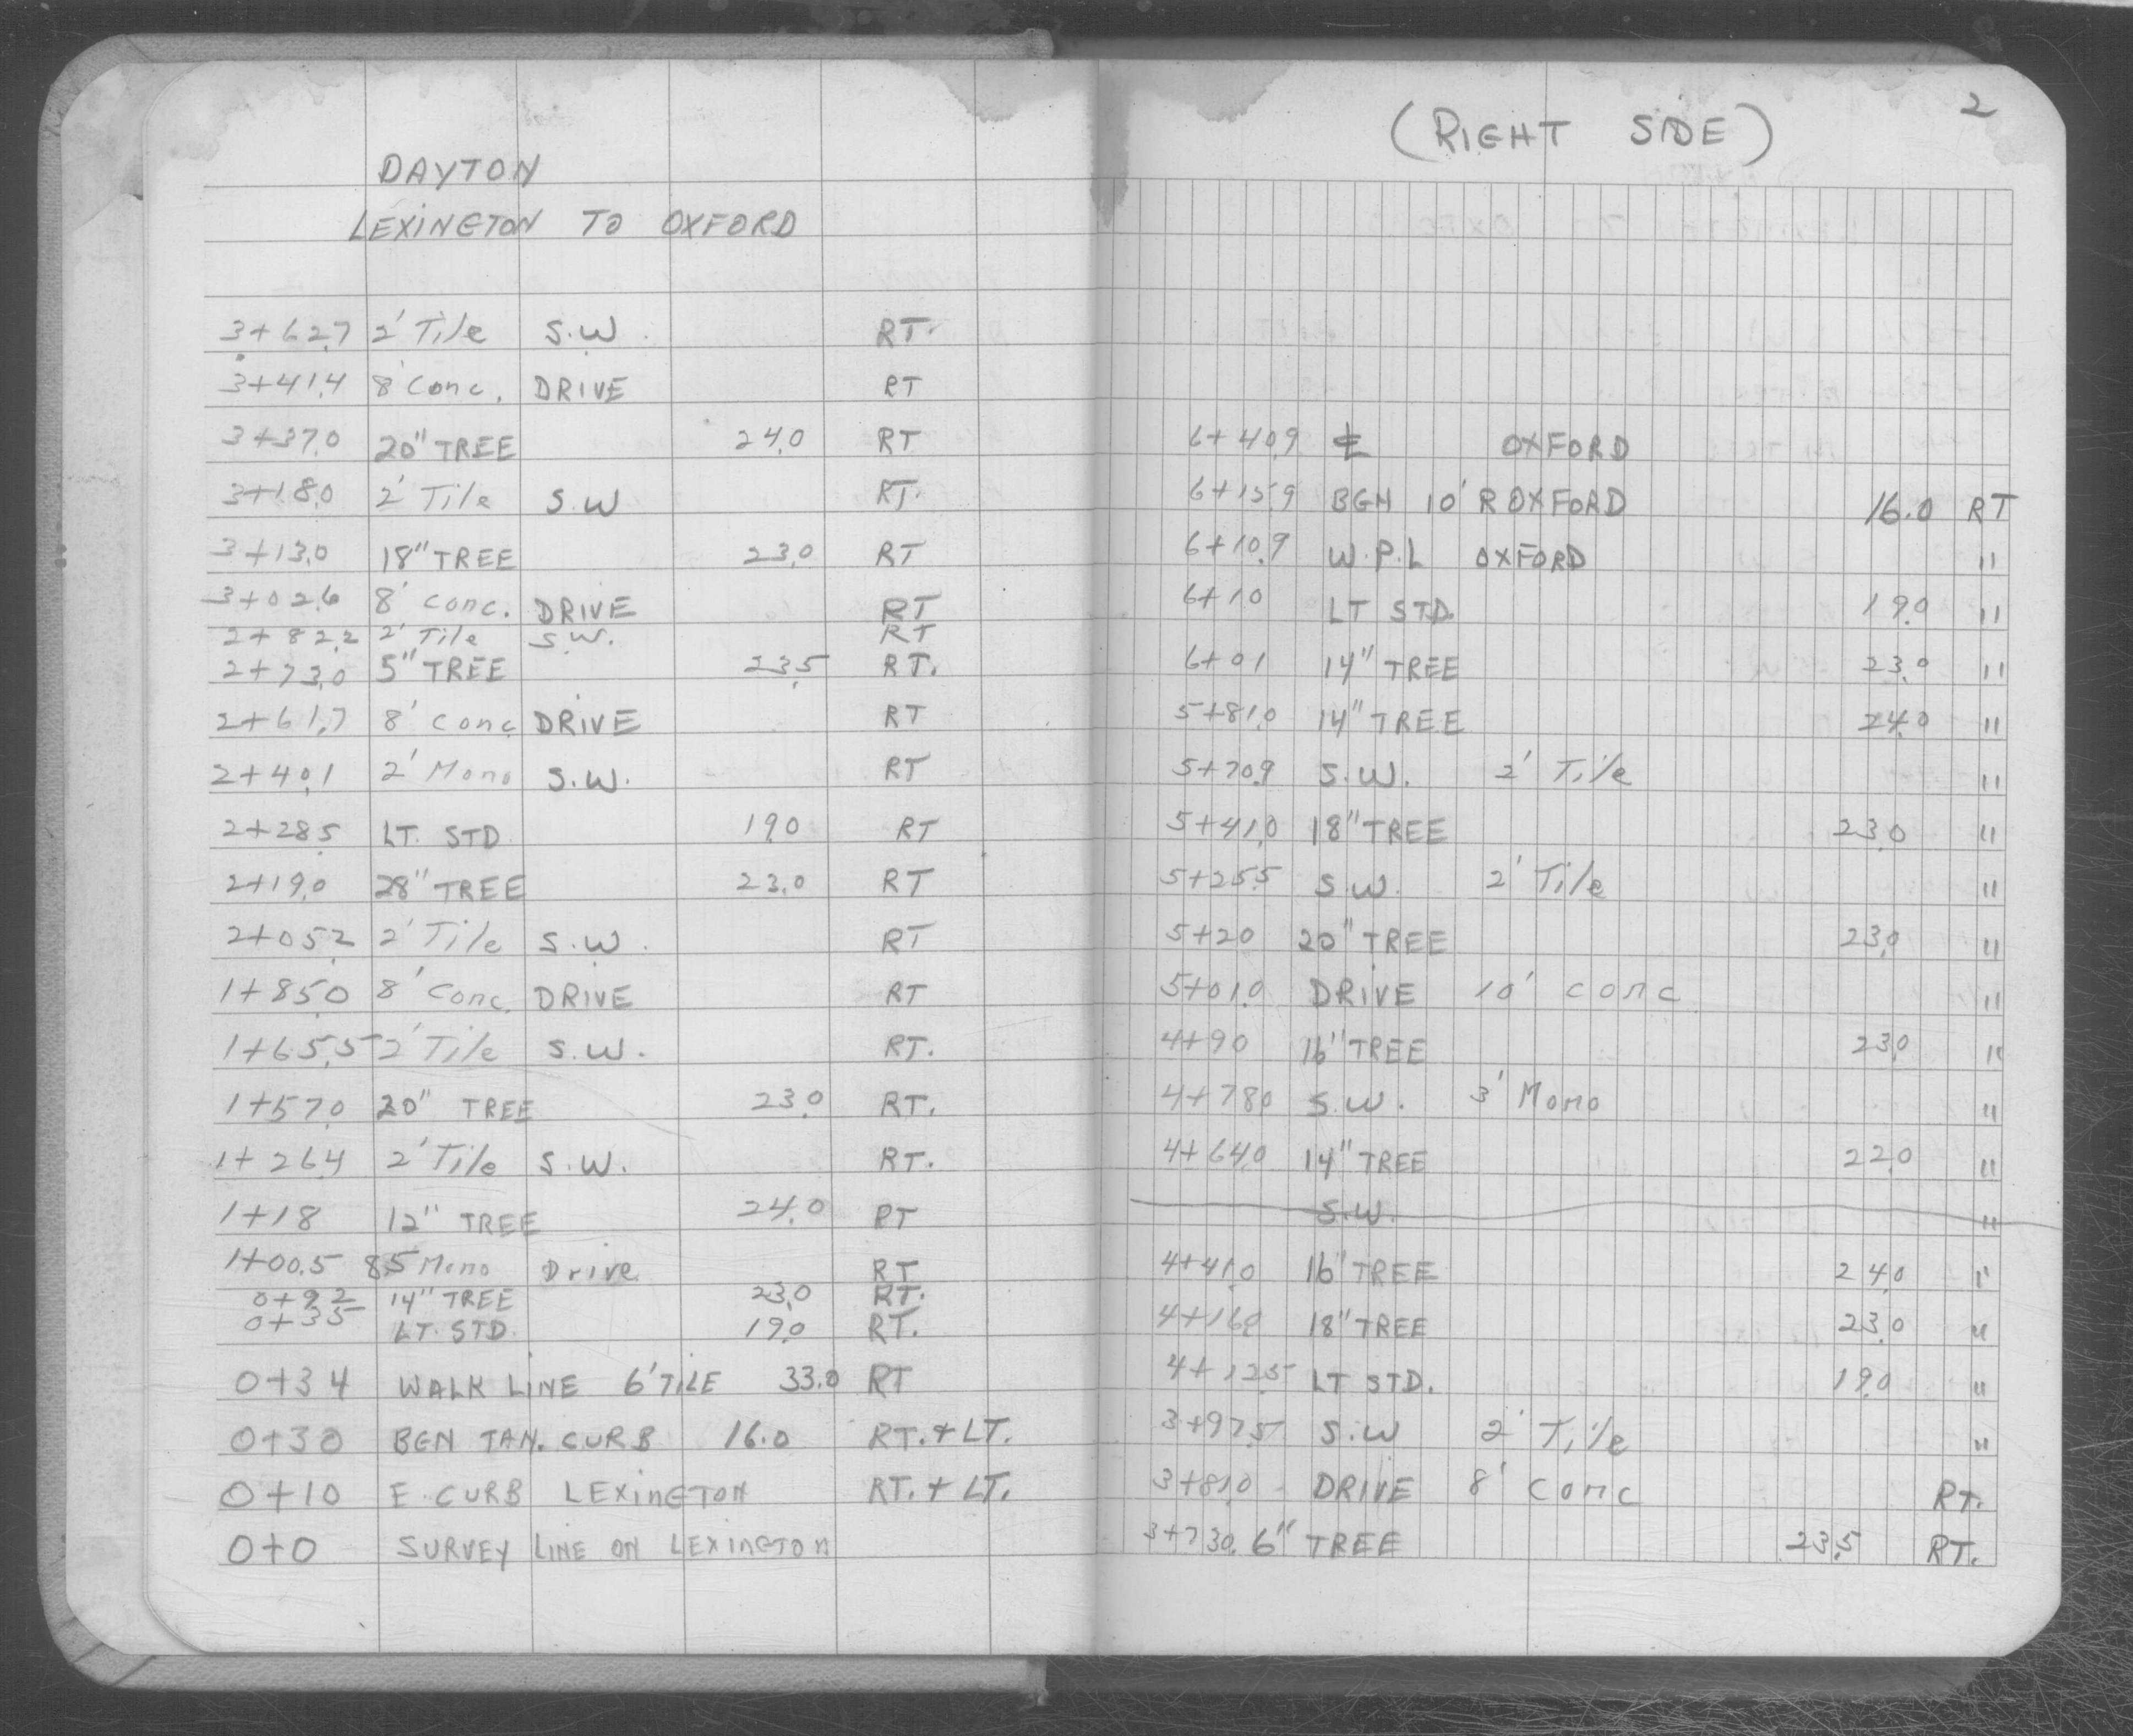 DAYTON
LEXINGTON TO OXFORD
3+62.7 2' Tile S.W. RT.
3+41.4 8' Conc. DRIVE RT
3+37.0 20" TREE 24.0 RT
3+18.0 2' Tile S.W RT.
3+13.0 18" TREE 23.0 RT
3+02.6 8' conc. DRIVE RT
2+82.2 2' Tile S.W. RT
2+73.0 5" TREE 23.5 RT.
2+61.7 8' conc DRIVE RT
2+40.1 2' Mono S.W. RT
2+28.5 LT. STD 19.0 RT
2+19.0 28" TREE 23.0 RT
2+05.2 2' Tile S.W. RT
1+85.0 8' Conc. DRIVE RT
1+65.5 2' Tile S.W. RT.
1+57.0 20" TREE 23.0 RT.
1+26.4 2' Tile S.W. RT.
1+18 12" TREE 24.0 RT
1+00.5 8.5 Mono Drive RT
0+92 14" TREE 23.0 RT.
0+35 LT. STD. 19.0 RT.
0+34 WALK LINE 6' TILE 33.0 RT
0+30 BEN TAN. CURB 16.0 RT.+LT.
0+10 E. CURB LEXINGTON RT.+LT.
0+0 SURVEY LINE ON LEXINGTON
2
(RIGHT SIDE)
6+40.9 ℄ OXFORD
6+15.9 BGN 10' R OXFORD 16.0 RT
6+10.9 W.P.L OXFORD "
6+10 LT STD. 19.0 "
6+01 14" TREE 23.0 "
5+81.0 14" TREE 24.0 "
5+70.9 S.W. 2' Tile "
5+41.0 18" TREE 23.0 "
5+25.5 S.W. 2' Tile "
5+20 20" TREE 23.0 "
5+01.0 DRIVE 10' conc "
4+90 16" TREE 23.0 "
4+78.0 S.W. 3' Mono "
4+64.0 14" TREE 22.0 "
S.W. "
4+41.0 16" TREE 24.0 "
4+16.0 18" TREE 23.0 "
4+12.5 LT STD. 19.0 "
3+97.5 S.W 2' Tile "
3+81.0 - DRIVE 8' conc RT.
3+73.0 6" TREE 23.5 RT.